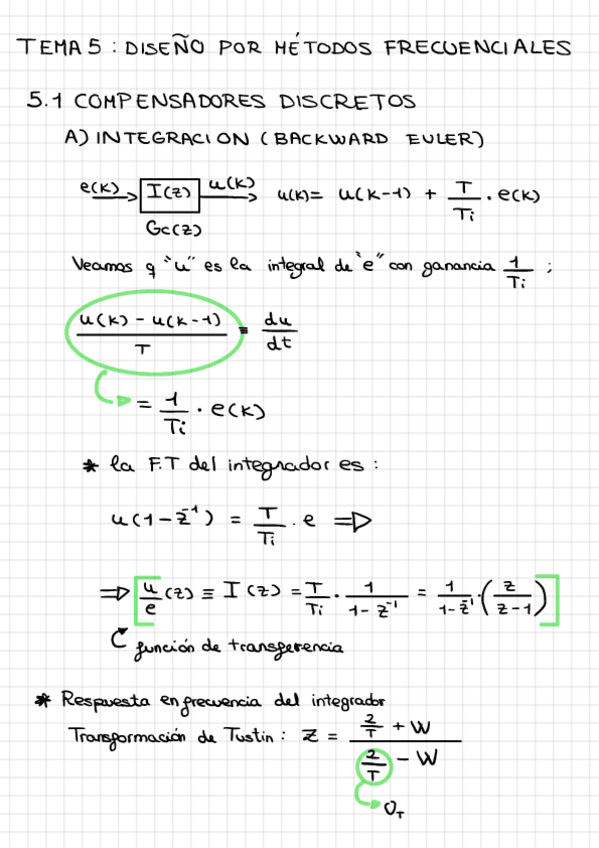 TEMA 5 : DISEÑO POR MÉTODOS FRECUENCIALES
5.1 COMPENSADORES DISCRETOS
A) INTEGRACION (BACKWARD EULER)
e(k) → I(z) u(k) → u(k) = u(k-1) + T/Ti · e(k)
Gc(z)
Veamos q "u" es la integral de "e" con ganancia 1/Ti ;
(u(k) - u(k-1))/T ≡ du/dt
= 1/Ti · e(k)
* la F.T del integrador es :
u(1-z⁻¹) = T/Ti · e ⇒
⇒ [u/e (z) ≡ I(z) = T/Ti · 1/(1-z⁻¹) = 1/(1-z⁻¹) · (z/(z-1))]
función de transferencia
* Respuesta en frecuencia del integrador
Transformación de Tustin : z = (2/T + W)/(2/T - W)
U_T